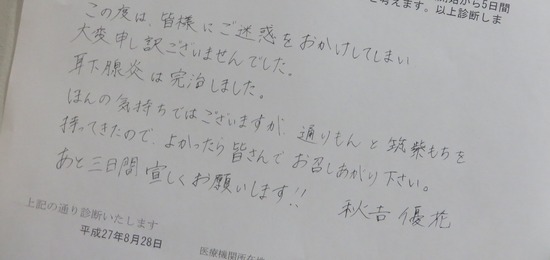 から5日間
と考えます。以上診断しま
この度は、皆様にご迷惑をおかけしてしまい
大変申し訳ございませんでした。
耳下腺炎は完治しました。
ほんの気持ちではございますが、通りもんと筑紫もちを
持ってきたので、よかったら皆さんでお召しあがり下さい。
あと三日間宜しくお願いします!!
秋吉優花
上記の通り診断いたします
平成27年8月28日
医療機関所在